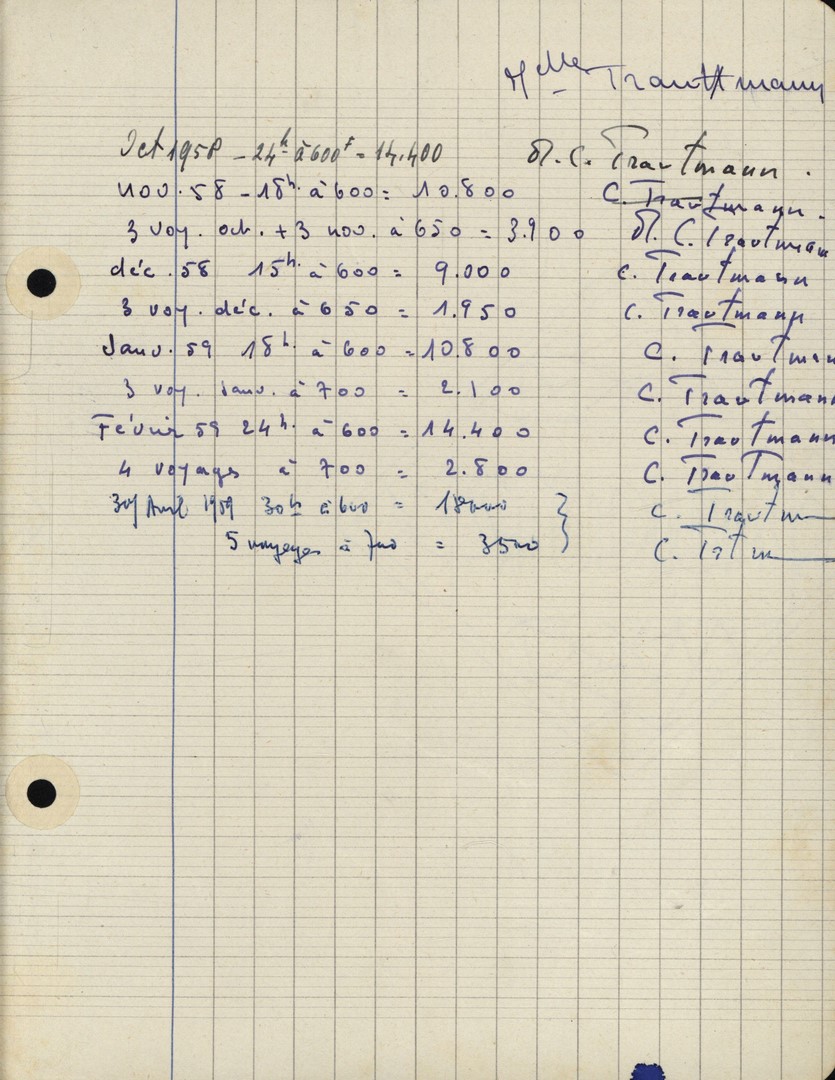 Mlle Trauttmann
Oct 1958 - 24h à 600f = 14.400 M. C. Trautmann.
nov. 58 - 18h. à 600 = 10.800 C. Trautmann.
3 voy. oct. + 3 nov. à 650 = 3.900 M. C. Trautmann
déc. 58 15h. à 600 = 9.000 C. Trautmann
3 voy. déc. à 650 = 1.950 C. Trautmann
Janv. 59 18h. à 600 = 10.800 C. Trautman
3 voy. Janv. à 700 = 2.100 C. Trautmann
Février 59 24h. à 600 = 14.400 C. Trautmann
4 voyages à 700 = 2.800 C. Trautmann
30 Avril 1959 30h à 600 = 18000 } C. Trautm
5 voyages à 700 = 3500 } C. Tatm